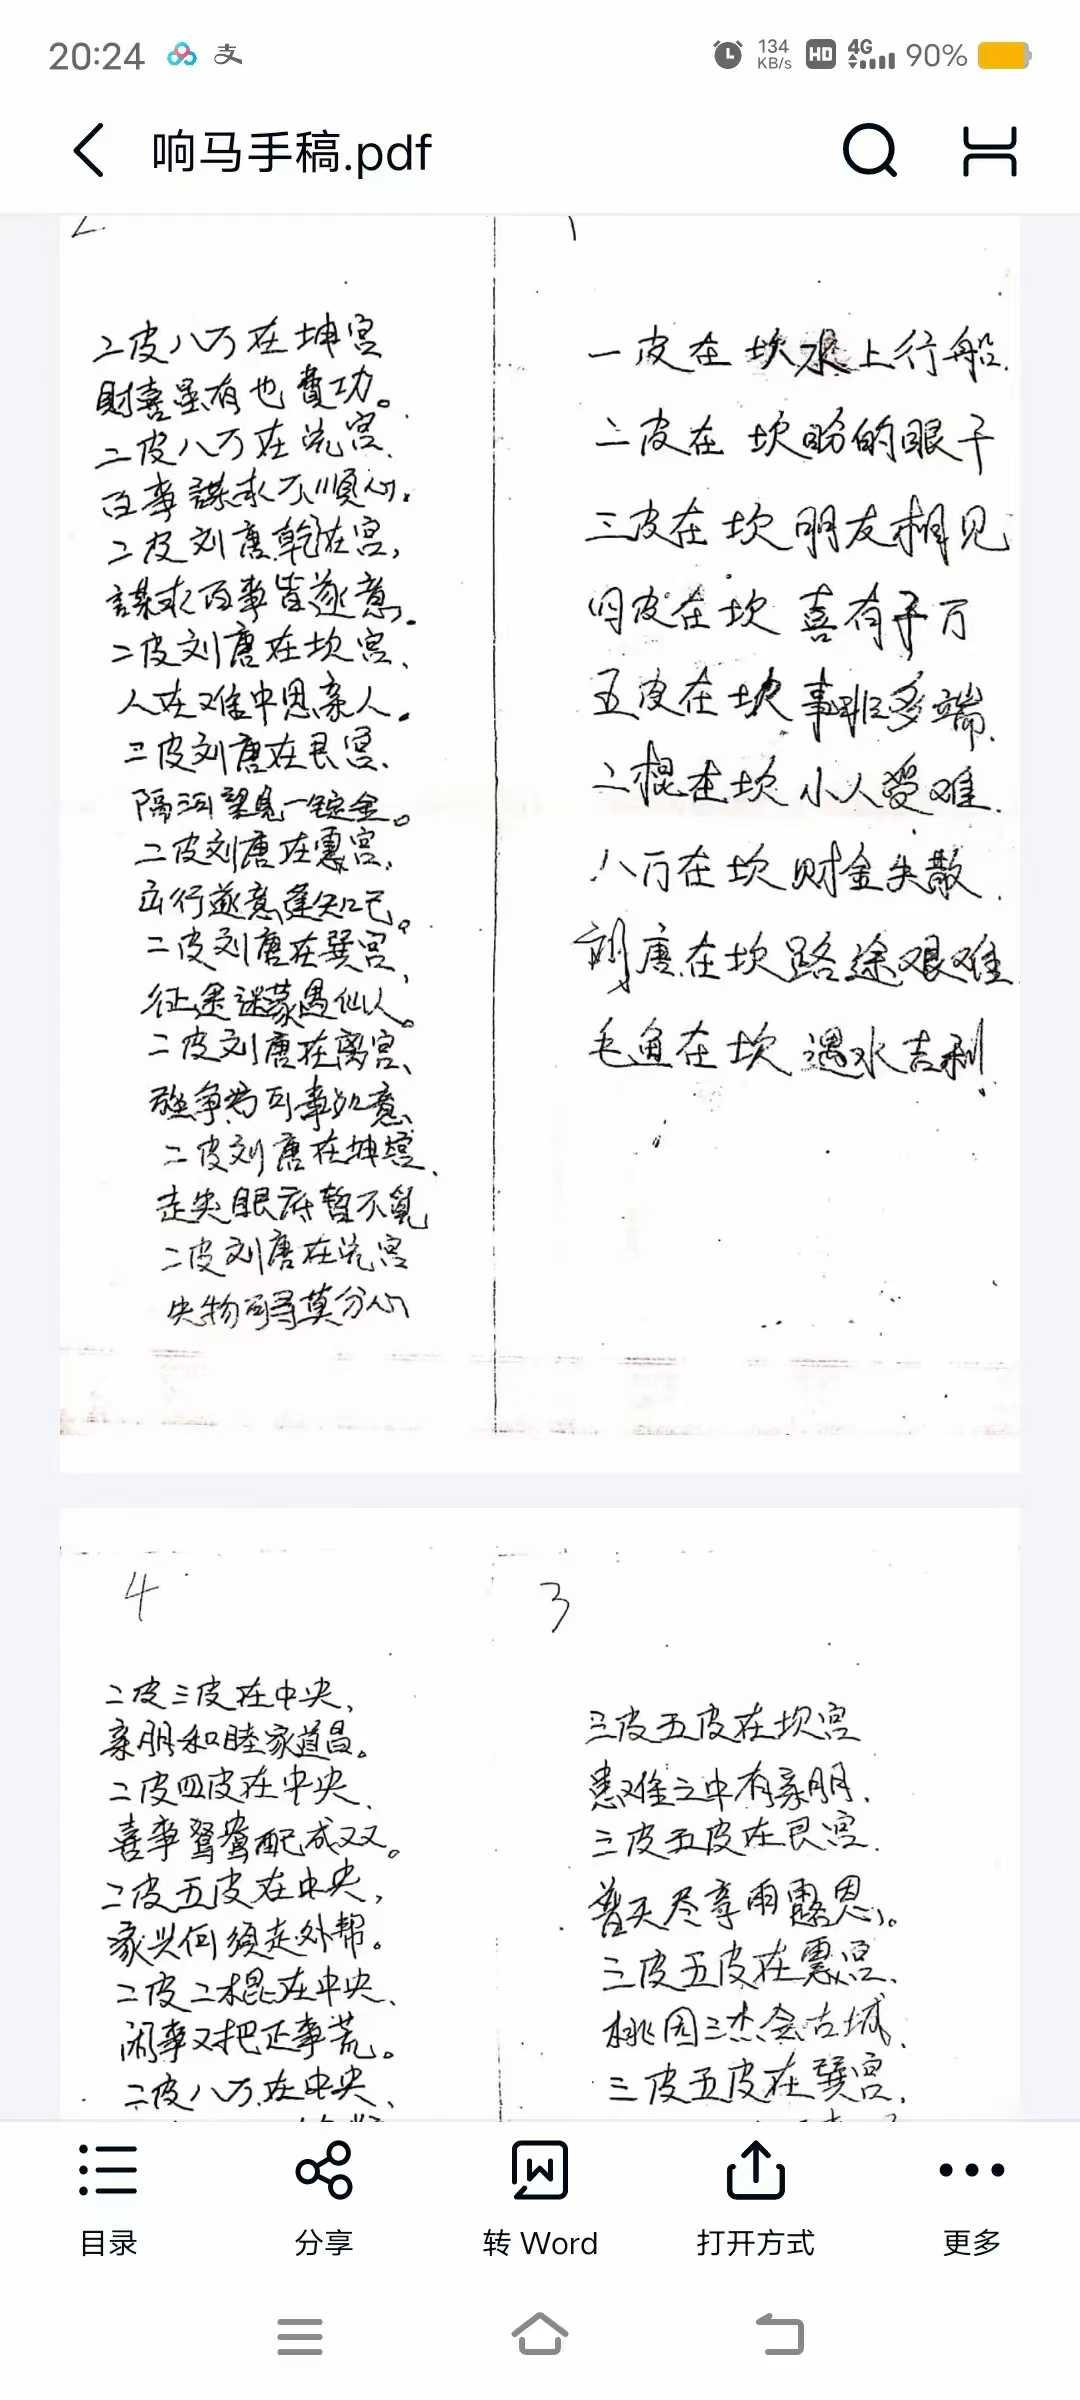 20:24
支
134
KB/s
HD
4G
90%
响马手稿.pdf
2
二皮八万在坤宫
財喜虽有也費功。
二皮八万在兑宫、
百事謀求不順心。
二皮刘唐乾在宫,
謀求百事皆遂意。
二皮刘唐在坎宫、
人在难中思亲人。
二皮刘唐在艮宫、
隔河望見一锭金。
二皮刘唐在震宫,
出行遂意逢知己。
二皮刘唐在巽宫,
征途迷蒙遇仙人。
二皮刘唐在离宫、
争为百事如意
二皮刘唐在坤宫、
走失眼底暂不見
二皮刘唐在兑宫
失物可寻莫分心
1
一皮在坎水上行船.
二皮在坎盼的眼干
三皮在坎朋友相见
四皮在坎喜有千万
五皮在坎事非多端.
二棍在坎小人受难.
八万在坎财金失散.
刘唐在坎路途艰难.
毛鱼在坎遇水吉利.
4
二皮三皮在中央,
亲朋和睦家道昌。
二皮四皮在中央、
喜事鸳鸯配成双。
二皮五皮在中央,
家兴何须走外帮。
二皮二棍在中央、
闲事又把正事荒。
二皮八万在中央、
3
三皮五皮在坎宫
患难之中有亲朋.
三皮五皮在艮宫.
普天尽享雨露恩。
三皮五皮在震宫.
桃园三杰会古城.
三皮五皮在巽宫.
目录
分享
转 Word
打开方式
更多